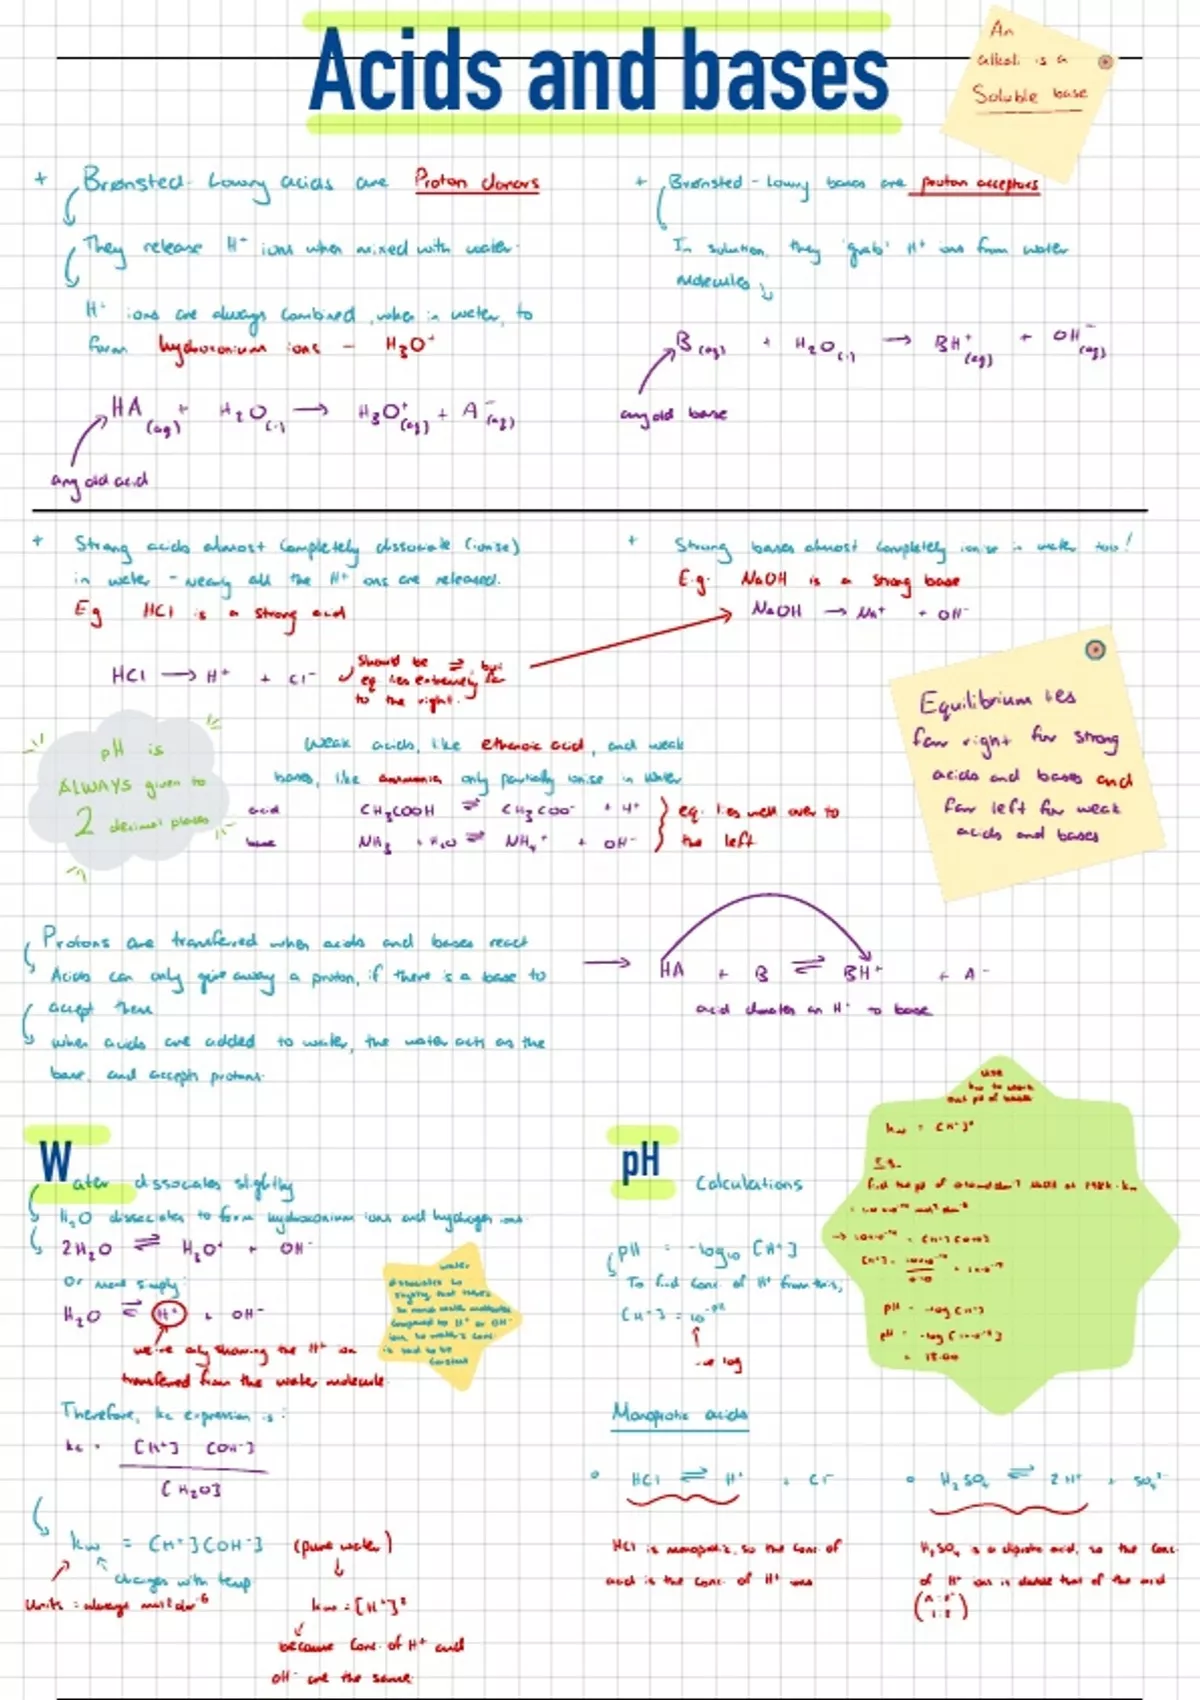 Acids and bases
An
alkali is a
Soluble base
+ Brønsted-Lowry acids are Proton donors
They release H⁺ ions when mixed with water.
H⁺ ions are always combined, when in water, to
form hydroxonium ions - H₃O⁺
HA(aq) + H₂O(l) → H₃O⁺(aq) + A⁻(aq)
any old acid
+ Brønsted-Lowry bases are proton acceptors
In solution, they 'grab' H⁺ ions from water
molecules
B(aq) + H₂O(l) → BH⁺(aq) + OH⁻(aq)
any old base
+ Strong acids almost completely dissociate (ionise)
in water - nearly all the H⁺ ions are released.
Eg HCl is a strong acid
HCl → H⁺ + Cl⁻
should be ⇌, but
eq lies extremely far
to the right.
+ Strong bases almost completely ionise in water too!
E.g. NaOH is a strong base
NaOH → Na⁺ + OH⁻
pH is
ALWAYS given to
2 decimal places
Weak acids, like ethanoic acid, and weak
bases, like ammonia only partially ionise in water
acid CH₃COOH ⇌ CH₃COO⁻ + H⁺
base NH₃ + H₂O ⇌ NH₄⁺ + OH⁻
eq. lies well over to
the left
Equilibrium lies
far right for strong
acids and bases and
far left for weak
acids and bases
Protons are transferred when acids and bases react
Acids can only give away a proton, if there is a base to
accept them
when acids are added to water, the water acts as the
base, and accepts protons.
→ HA + B ⇌ BH⁺ + A⁻
acid donates an H⁺ to base
Water dissociates slightly
H₂O dissociates to form hydroxonium ions and hydrogen ions.
2H₂O ⇌ H₃O⁺ + OH⁻
Or more simply:
H₂O ⇌ H⁺ + OH⁻
we're only showing the H⁺ ion
transferred from the water molecule
water
dissociates so
slightly that there's
so much water
compared to H⁺ or OH⁻
ions, so water's conc.
is said to be
constant
Therefore, kc expression is:
kc = [H⁺] [OH⁻]
[H₂O]
kw = [H⁺][OH⁻] (pure water)
changes with temp
Units = always mol²dm⁻⁶
kw = [H⁺]²
because conc. of H⁺ and
OH⁻ are the same.
pH Calculations
pH = -log₁₀ [H⁺]
To find conc. of H⁺ from this,
[H⁺] = 10⁻ᵖᴴ
-ve log
use
kw to work
out pH of bases
kw = [H⁺]²
E.g.
find the pH of NaOH at 298k. kw
pH = -log [H⁺]
Monoprotic acids
HCl ⇌ H⁺ + Cl⁻
HCl is monoprotic, so the conc. of
acid is the conc. of H⁺ ions
H₂SO₄ ⇌ 2H⁺ + SO₄²⁻
H₂SO₄ is a diprotic acid, so the conc.
of H⁺ ions is double that of the acid